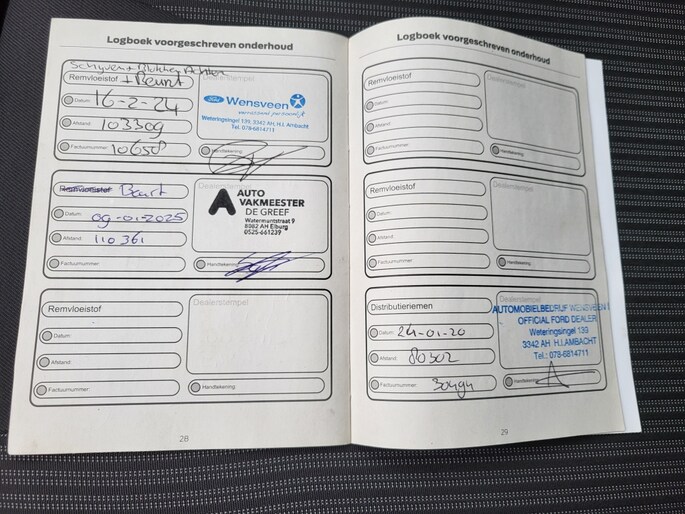 Logboek voorgeschreven onderhoud
Schyven + Blokken Achter
Remvloeistof + Beurt
Dealerstempel
Datum: 16-2-24
Ford Wensveen
verrassend persoonlijk
Weteringsingel 139, 3342 AH, H.I. Ambacht
Tel. 078-6814711
Afstand: 103309
Factuurnummer: 10658
Handtekening:
Remvloeistof Beurt
Dealerstempel
Datum: 09-01-2025
AUTO
VAKMEESTER
DE GREEF
Watermuntstraat 9
8082 AH Elburg
0525-661239
Afstand: 110361
Factuurnummer:
Handtekening:
Remvloeistof
Dealerstempel
Datum:
Afstand:
Factuurnummer:
Handtekening:
28
Logboek voorgeschreven onderhoud
Remvloeistof
Dealerstempel
Datum:
Afstand:
Factuurnummer:
Handtekening:
Remvloeistof
Dealerstempel
Datum:
Afstand:
Factuurnummer:
Handtekening:
Distributieriemen
Dealerstempel
AUTOMOBIELBEDRIJF WENSVEEN
OFFICIAL FORD DEALER
Weteringsingel 139
3342 AH H.I.AMBACHT
Tel.: 078-6814711
Datum: 24-01-20
Afstand: 80302
Factuurnummer:
Handtekening:
29